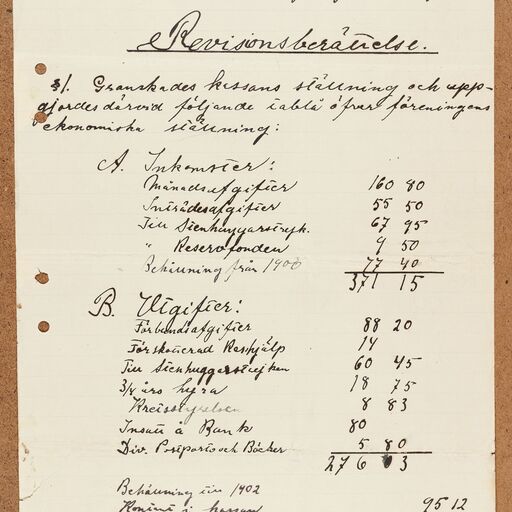 Revisionsberättelse.
§1. Granskades kassans ställning och upp-
gjordes därvid följande tablå öfver föreningens
ekonomiska ställning:
A. Inkomster:
Månadsafgifter 160 80
Inträdesafgifter 55 50
Till Stenhuggarstrejk. 67 95
" Reservfonden 9 50
Behållning från 1900 77 40
371 15
B. Utgifter:
Förbundsafgifter 88 20
Förskotterad Reshjälp 14
Till Stenhuggerstrejken 60 45
3/4 års hyra 18 75
Kretsstyrelsen 8 83
Insatt å Bank 80
Div. Postporto och Böcker 5 80
276 03
Behållning till 1902
Kontant i kassan 95 12